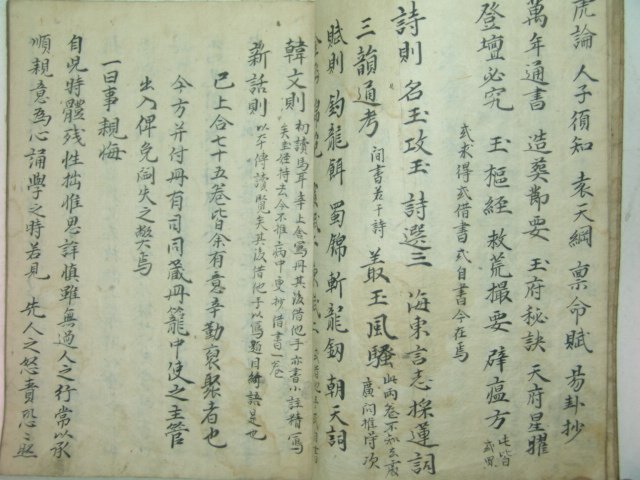 虎論 人子須知 袁天綱 稟命賦 易卦抄
萬年通書 造葬節要 玉府秘訣 天府星曜
登壇必究 玉樞經 救荒撮要 辟瘟方 此皆
或求得或借書或自書今在焉
詩則 名玉攻玉 詩選三 海東言志採蓮詞
三韻通考 間書若干詩 叢玉風騷 此兩卷不知去處
廣問推尋次
賦則 釣龍餌 蜀錦 斬龍釰 朝天詞
韓文則 初讀馬耳寺上舍寫丹其後借他手亦書小註精寫
矣玉侄持去今不推病中更抄借書一卷
新話則 以午傳讀覽矣其後借他手以寫題目
已上合七十五卷皆余有意辛勤裒聚者也
今方并付丹有司同藏丹籠中使之主管
出入俾免闊失之弊焉
一曰事親悔
自兒時體殘性拙惟思詳慎雖無過人之行常以承
順親意爲心誦學之時若見 先人之怒責恐